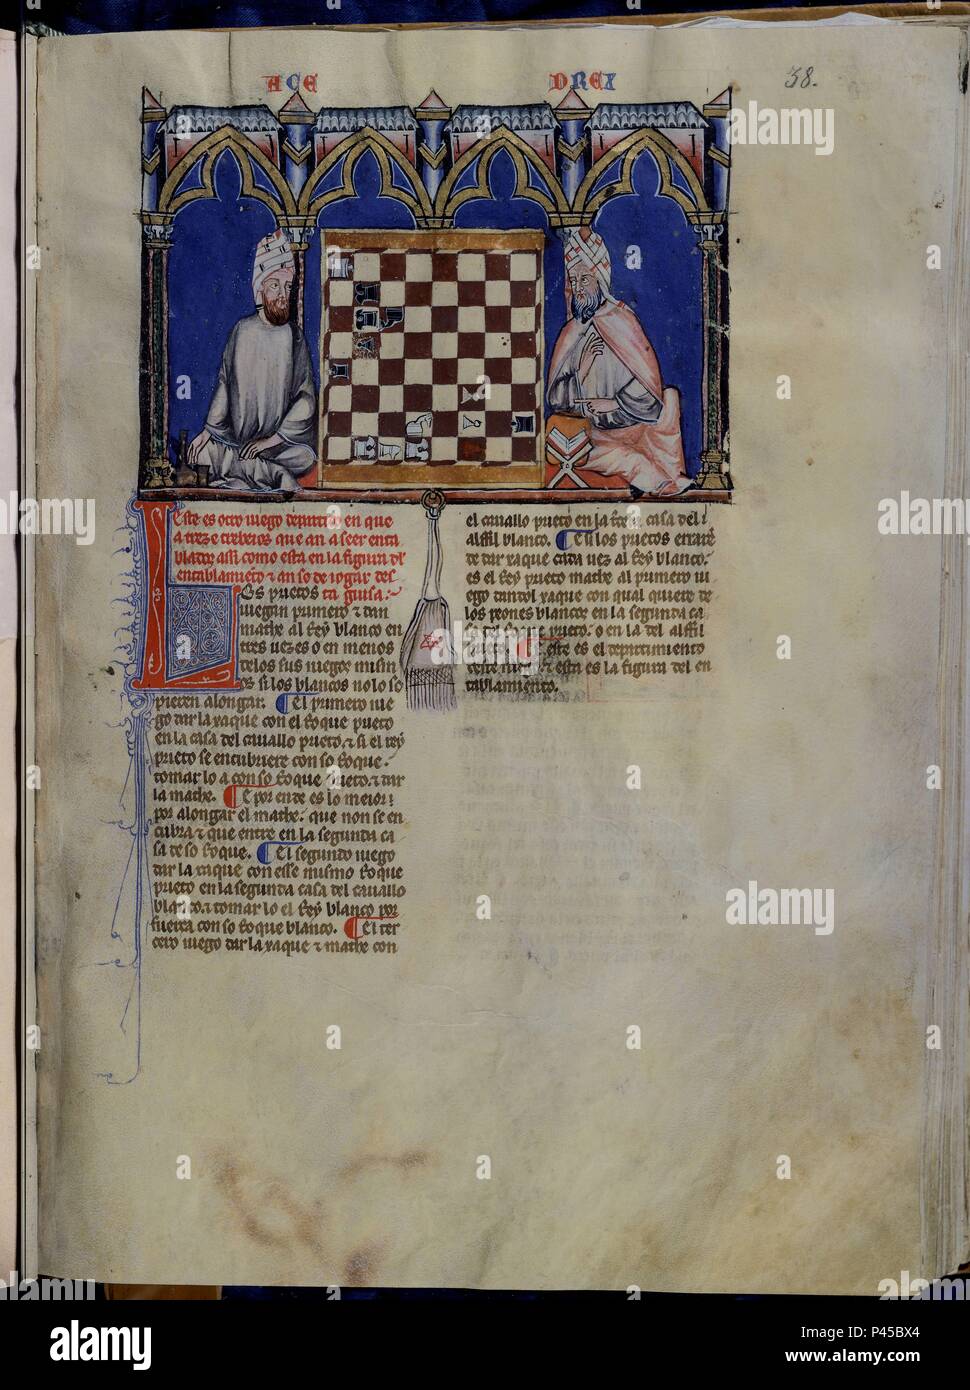 ACE DREX
38.
Este es otro iuego departido en que
a treze trebeios que an a seer enta
blados assi como esta en la figura del
entablamiento & an se de iogar desta guisa.
Los prietos
iuegan primero & dan
mathe al Rey blanco en
tres uezes o en menos
delos sus iuegos mismos
si los blancos no lo so
pieren alongar. El primero iue
go dar la xaque con el Roque prieto
en la casa del cauallo prieto. & si el Rey
prieto se encubriere con so Roque.
tomar lo a con so Roque prieto. & dar
la mathe. E por ende es lo meior
por alongar el mathe. que non se en
cubra & que entre en la segunda ca
sa de so Roque. El segundo iuego
dar la xaque con esse mismo Roque
prieto en la segunda casa del cauallo
blanco. & tomar lo el Rey blanco por
fuerça con so Roque blanco. El ter
cero iuego dar la xaque & mathe con
el cauallo prieto en la casa del
alffil blanco. E si los prietos erraren
de dar xaque cada uez al Rey blanco.
es el Rey prieto mathe al primero iu
ego dandol xaque con qual quiere de
los peones blancos en la segunda ca
sa del Roque prieto. o en la del alffil
prieto. E este es el departimiento
deste iuego. & esta es la figura del en
tablamiento.
alamy
Image ID: P45BX4
www.alamy.com